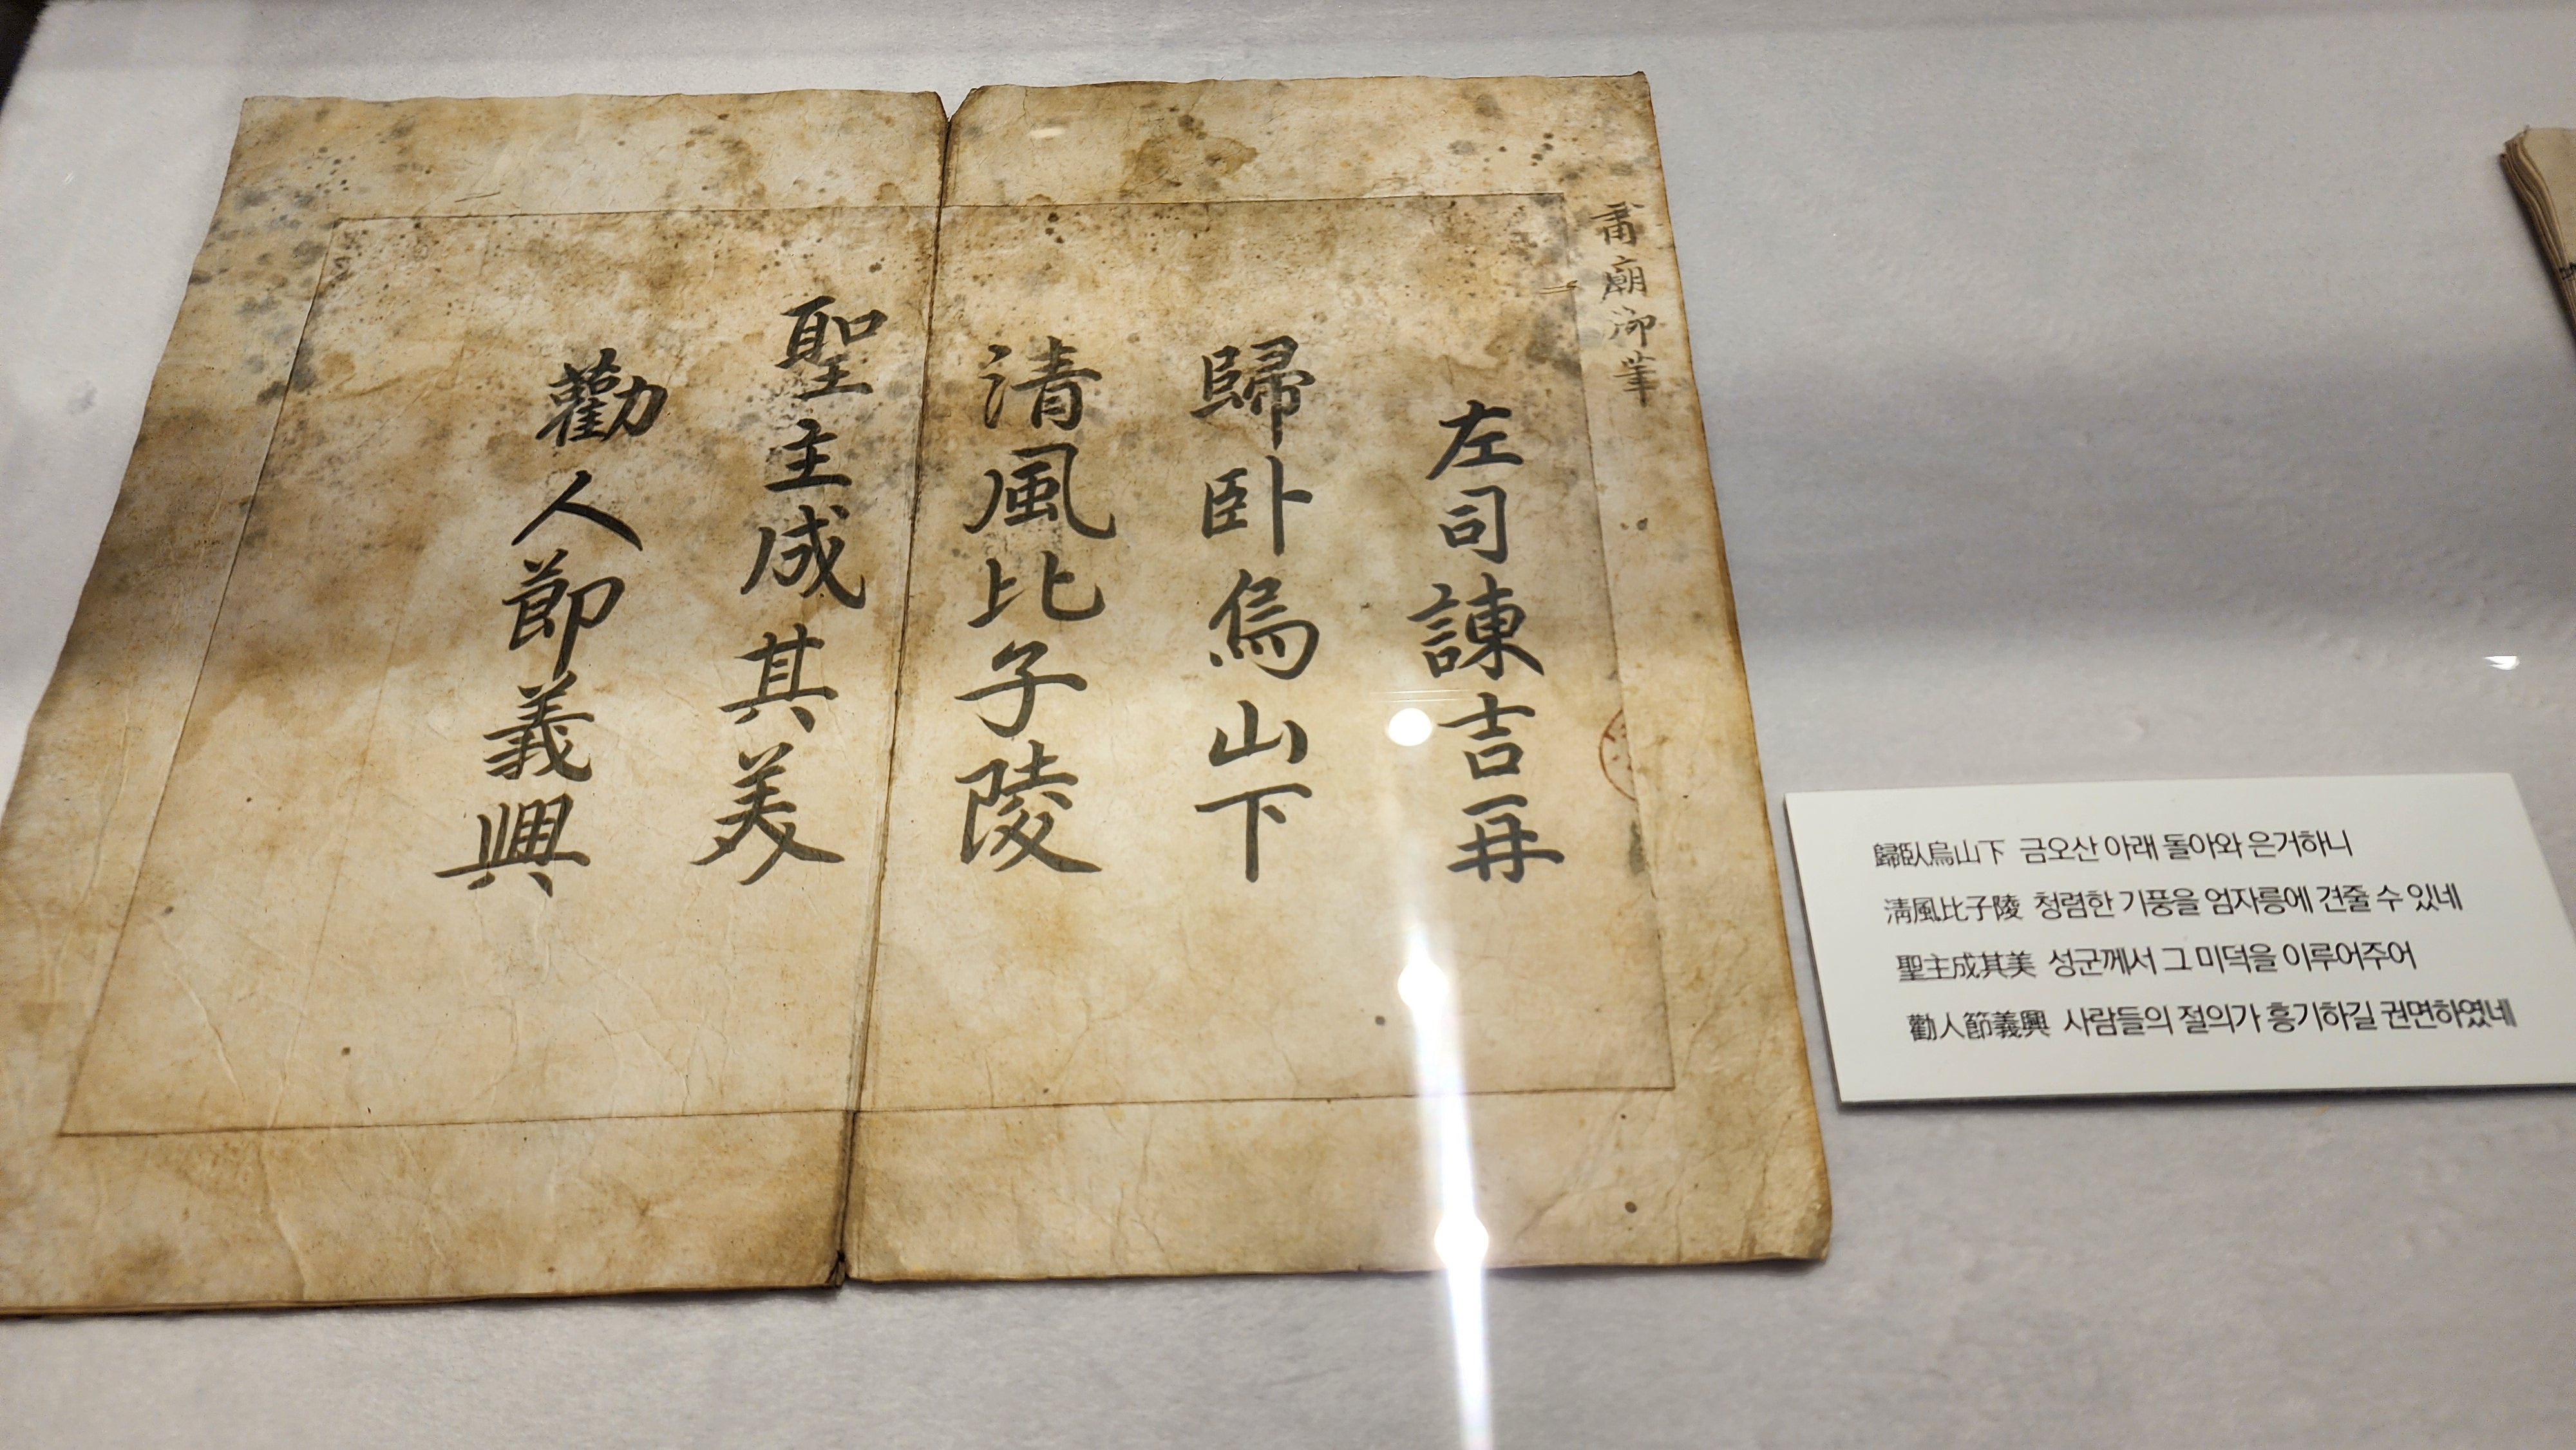 肅廟御筆
左司諫吉再
歸卧烏山下
清風比子陵
聖主成其美
勸人節義興
歸臥烏山下 금오산 아래 돌아와 은거하니
淸風比子陵 청렴한 기풍을 엄자릉에 견줄 수 있네
聖主成其美 성군께서 그 미덕을 이루어주어
勸人節義興 사람들의 절의가 흥기하길 권면하였네